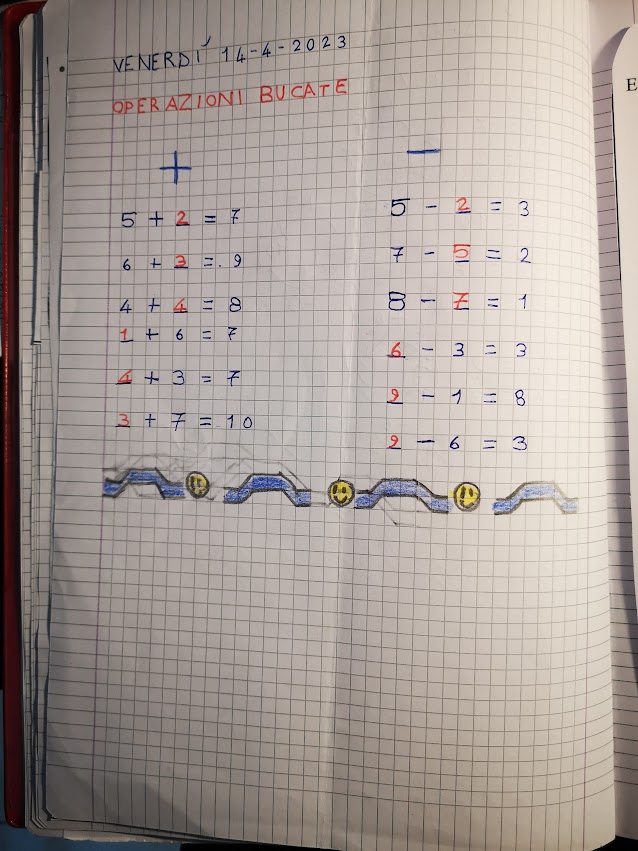 VENERDÍ 14-4-2023
OPERAZIONI BUCATE
+
5 + 2 = 7
6 + 3 = 9
4 + 4 = 8
1 + 6 = 7
4 + 3 = 7
3 + 7 = 10
−
5 − 2 = 3
7 − 5 = 2
8 − 7 = 1
6 − 3 = 3
9 − 1 = 8
9 − 6 = 3
E